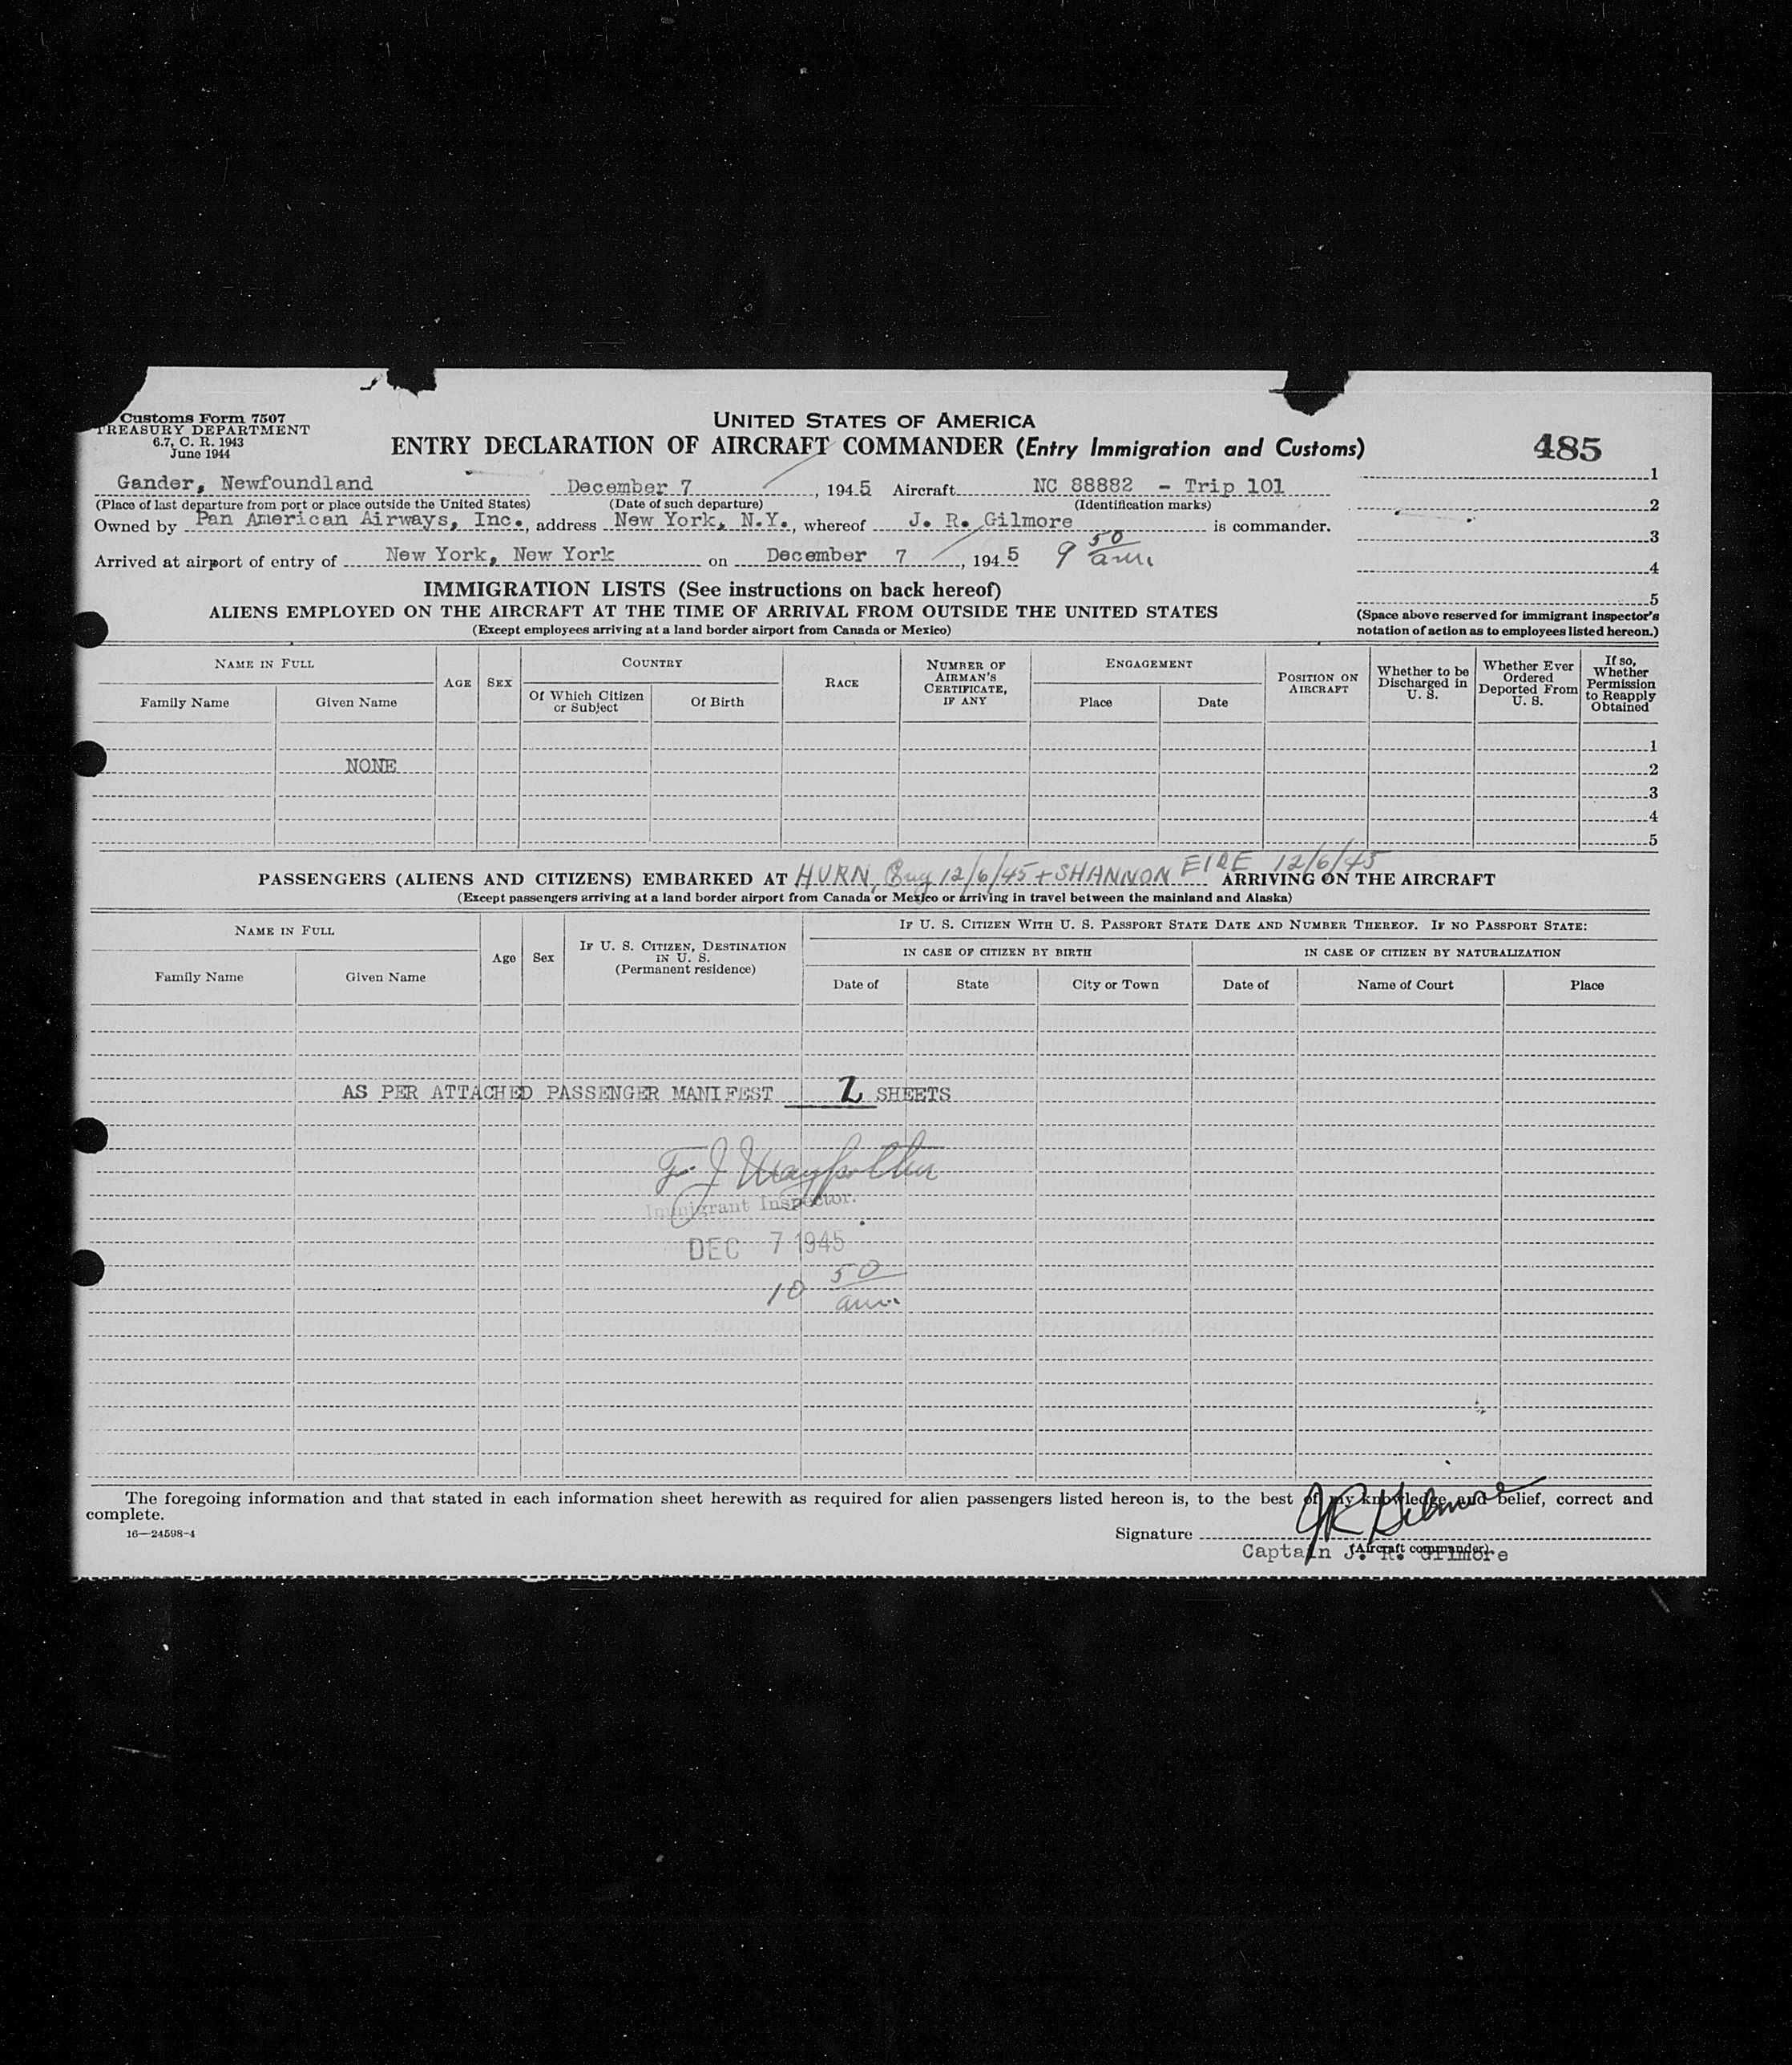 Customs Form 7507
TREASURY DEPARTMENT
6.7, C. R. 1943
June 1944
UNITED STATES OF AMERICA
ENTRY DECLARATION OF AIRCRAFT COMMANDER (Entry Immigration and Customs)
485
Gander, Newfoundland December 7, 1945 Aircraft NC 88882 - Trip 101
(Place of last departure from port or place outside the United States) (Date of such departure) (Identification marks)
Owned by Pan American Airways, Inc., address New York, N.Y., whereof J. R. Gilmore is commander.
Arrived at airport of entry of New York, New York on December 7, 1945 9 50 am.
1
2
3
4
5
(Space above reserved for immigrant inspector's notation of action as to employees listed hereon.)
IMMIGRATION LISTS (See instructions on back hereof)
ALIENS EMPLOYED ON THE AIRCRAFT AT THE TIME OF ARRIVAL FROM OUTSIDE THE UNITED STATES
(Except employees arriving at a land border airport from Canada or Mexico)
NAME IN FULL
Family Name Given Name
AGE
SEX
COUNTRY
Of Which Citizen or Subject Of Birth
RACE
NUMBER OF AIRMAN'S CERTIFICATE, IF ANY
ENGAGEMENT
Place Date
POSITION ON AIRCRAFT
Whether to be Discharged in U. S.
Whether Ever Ordered Deported From U. S.
If so, Whether Permission to Reapply Obtained
1
NONE 2
3
4
5
PASSENGERS (ALIENS AND CITIZENS) EMBARKED AT HURN, Eng 12/6/45 + SHANNON EIRE 12/6/45 ARRIVING ON THE AIRCRAFT
(Except passengers arriving at a land border airport from Canada or Mexico or arriving in travel between the mainland and Alaska)
NAME IN FULL
Family Name Given Name
Age
Sex
IF U. S. CITIZEN, DESTINATION IN U. S. (Permanent residence)
IF U. S. CITIZEN WITH U. S. PASSPORT STATE DATE AND NUMBER THEREOF. IF NO PASSPORT STATE:
IN CASE OF CITIZEN BY BIRTH IN CASE OF CITIZEN BY NATURALIZATION
Date of State City or Town Date of Name of Court Place
AS PER ATTACHED PASSENGER MANIFEST 2 SHEETS
Immigrant Inspector.
DEC 7 1945
10 50 am.
The foregoing information and that stated in each information sheet herewith as required for alien passengers listed hereon is, to the best of my knowledge and belief, correct and
complete.
16—24598-4
Signature JR Gilmore
(Aircraft commander)
Captain J. R. Gilmore